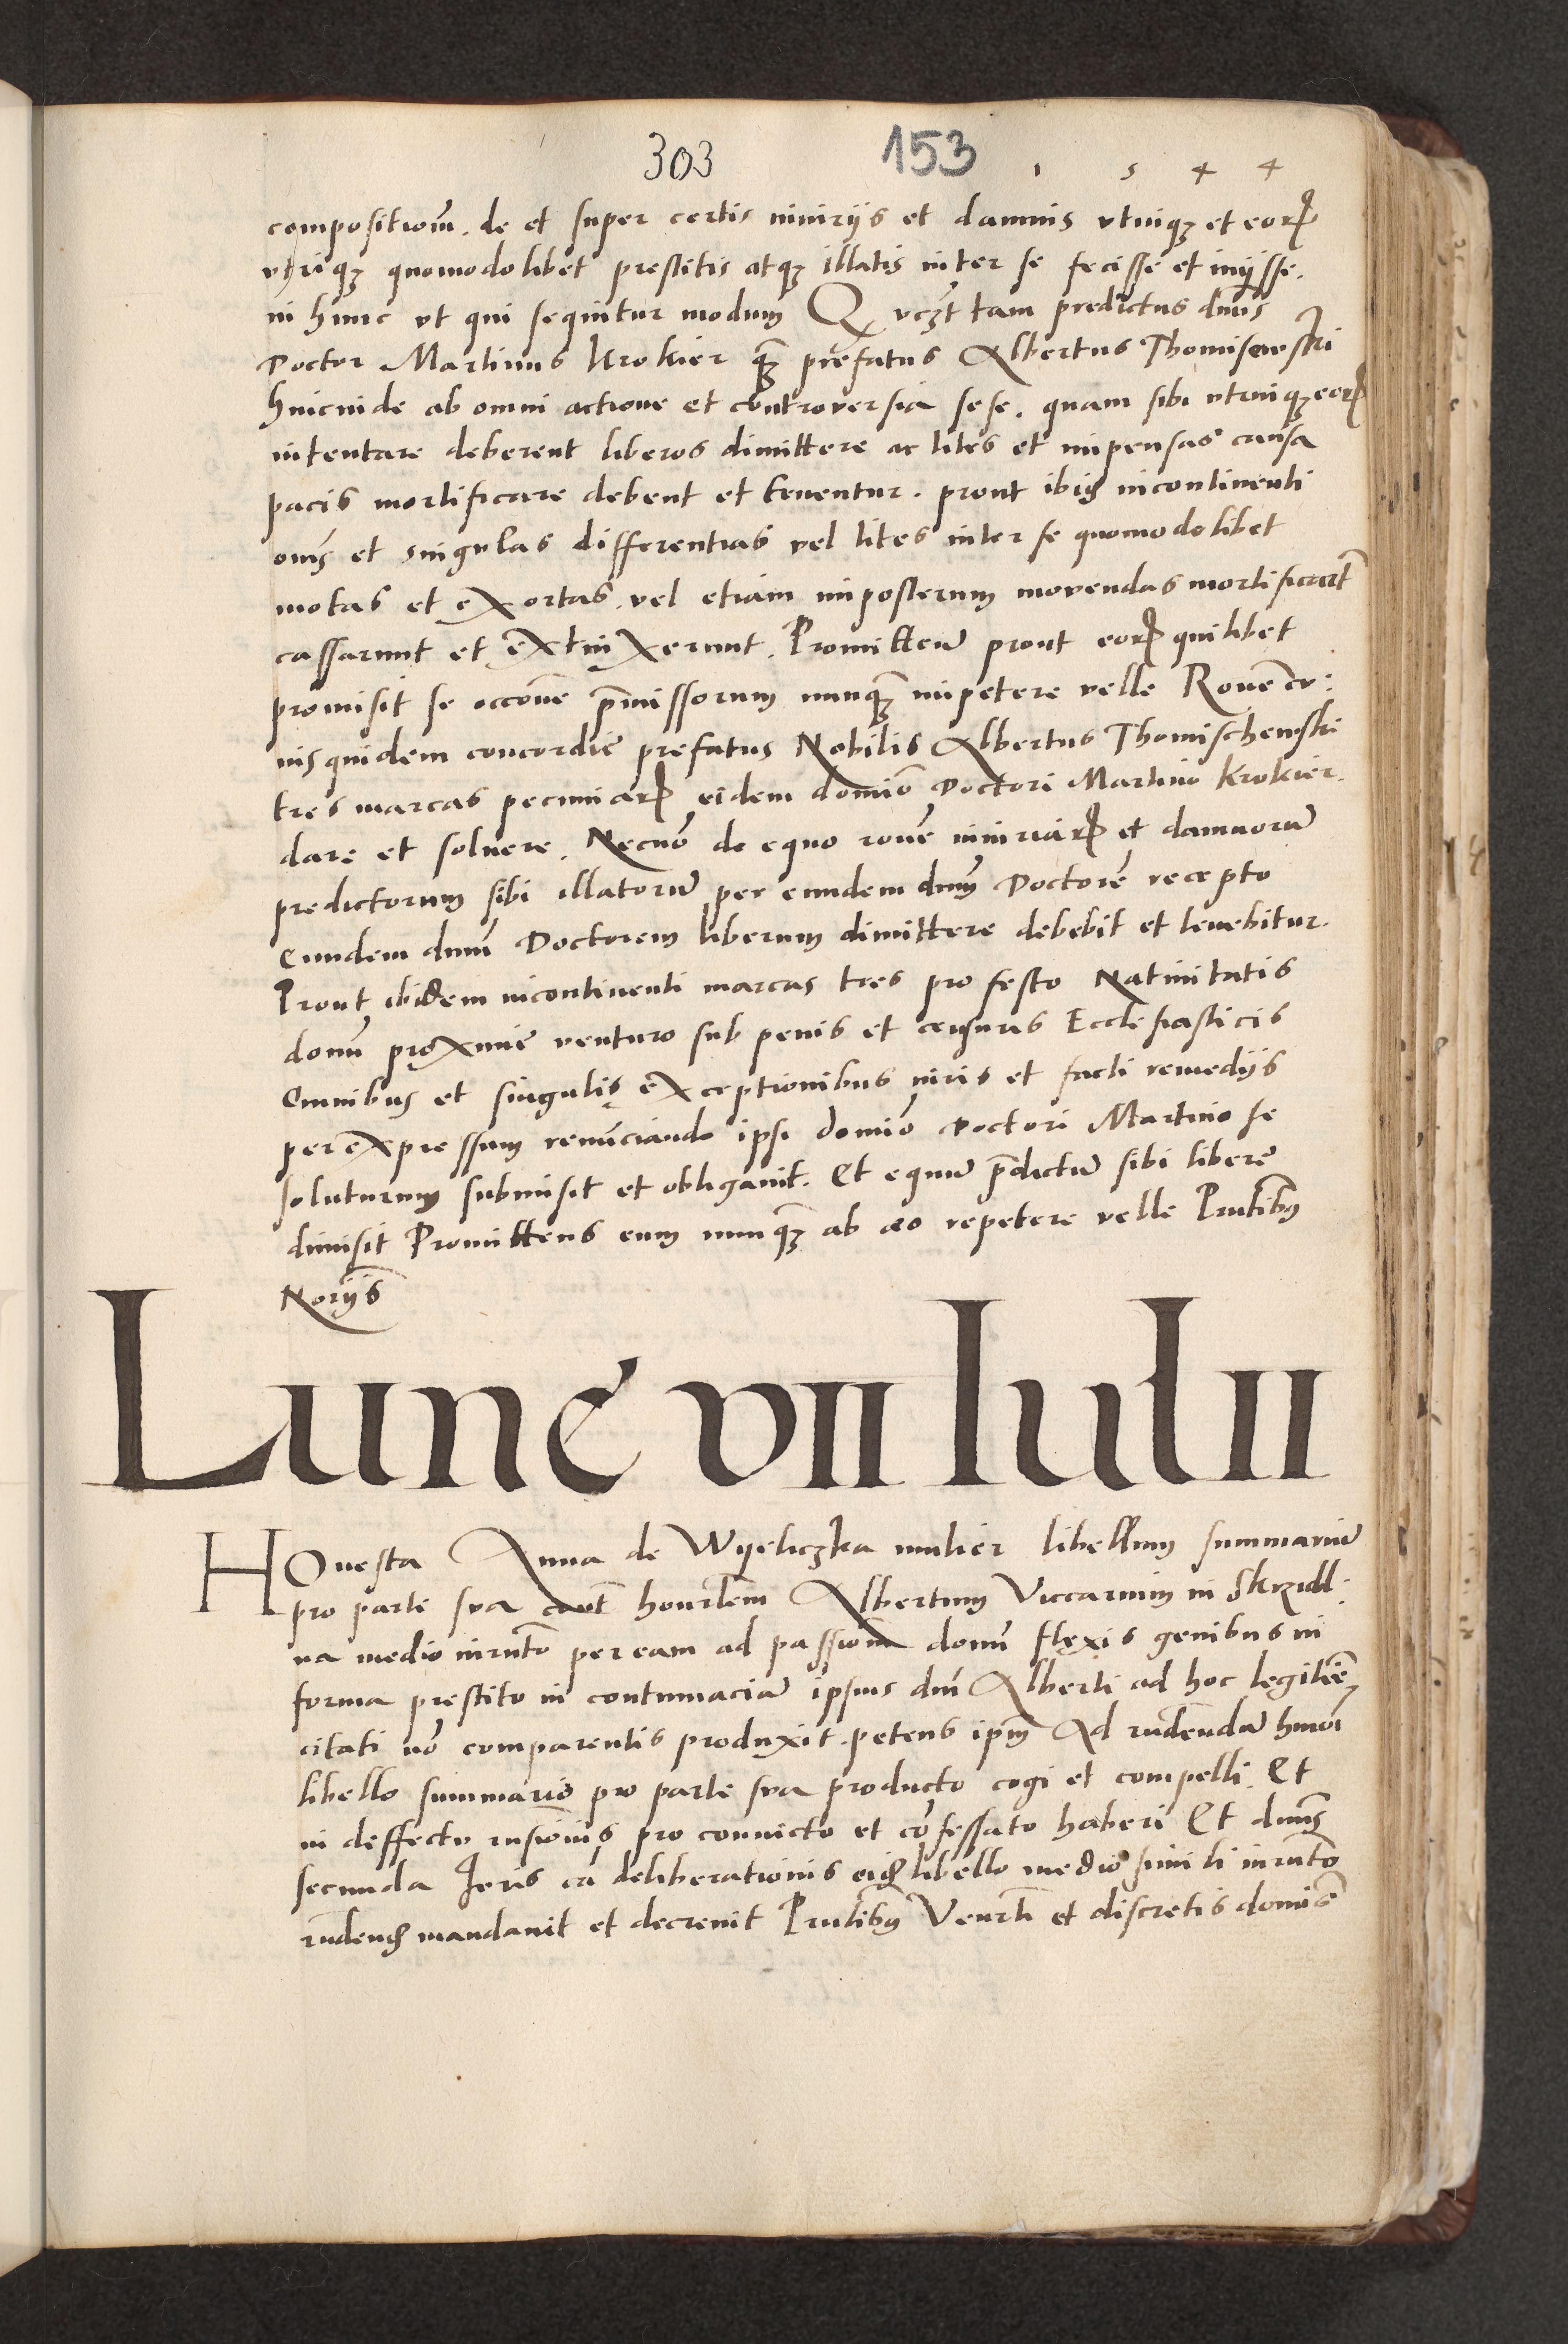 303 153 1 5 4 4
compositionẽ. de et super certis iniuriis et damnis vtriqꝫ et eorꝝ
vtriqꝫ quomodolibet prestitis atqꝫ illatis inter se fecisse et inijsse.
in hunc vt qui sequitur modum Q vcꝫt tam predictus dn̄us
Doctor Martinus Krokier qꝫ prefatus Albertus Thomisewski
hincinde ab omni actione et controversia sese. quam sibi vtrinqꝫ eorꝝ
intentare deberent liberos dimittere ac lites et impensas causa
pacis mortificare debent et tenentur. prout ibidem incontinenti
om̄s et singulas differentias vel lites inter se quomodolibet
motas et exortas. vel etiam imposterum movendas mortificarūt
cassarunt et extinxerunt. Promitteñ prout eorꝝ quilibet
promisit se occōne p̄missorum nunqꝫ impetere velle Rōne cu:
iusquidem concordie prefatus Nobilis Albertus Thomischewski
tres marcas pecuniarꝝ eidem domiō Doctori Martino Krokier.
dare et soluere. Necnō de equo rōne iniuriarꝝ et damnorū
predictorum sibi illatorū per eundem dn̄m Doctorē recepto
eundem dn̄m Doctorem liberum dimittere debebit et tenebitur.
Prout ibidem incontinenti marcas tres pro festo Natiuitatis
domī proxime venturo sub penis et censuris Ecclesiasticis
Omnibus et singulis exceptionibus iuris et facti remediis
per expressum renunciando ipsi domiō Doctori Martino se
soluturum submisit et obligauit. Et equū p̄dictū sibi libere
dimisit Promittens eum nunqꝫ ab eo repetere velle Pn̄tibus
Norijs
Lune vii Iulii
HOnesta Anna de Wyeliczka mulier libellum summariū
pro parte sua con̄t honorabilem Albertum Viccarium in Skrzidl:
na medio iur̄nto per eam ad passionē domī flexis genibus in
forma prestito in contumaciā ipsius dn̄i Alberti ad hoc legitīe
citati nō comparentis produxit. petens ip̄m Ad rn̄dendū hm̄oi
libello summario pro parte sua producto cogi et compelli. Et
in deffectu rn̄sionis pro conuicto et cōfessato haberi Et dn̄us
secunda Iuris ca deliberationis eidem libello medio simili iur̄nto
rn̄dendum mandauit et decreuit Pn̄tibus Ven̄li et discretis domis